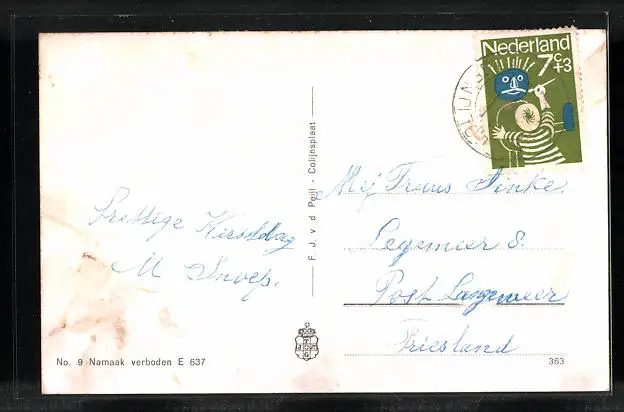 Nederland
7 c +3
COLIJNS
F. J. v d Peijl - Colijnsplaat
Prettige Kerstdag
M Snoep.
Mej Truus Sinke.
Legemeer 8.
Post Langweer
Friesland
No. 9 Namaak verboden E 637
363